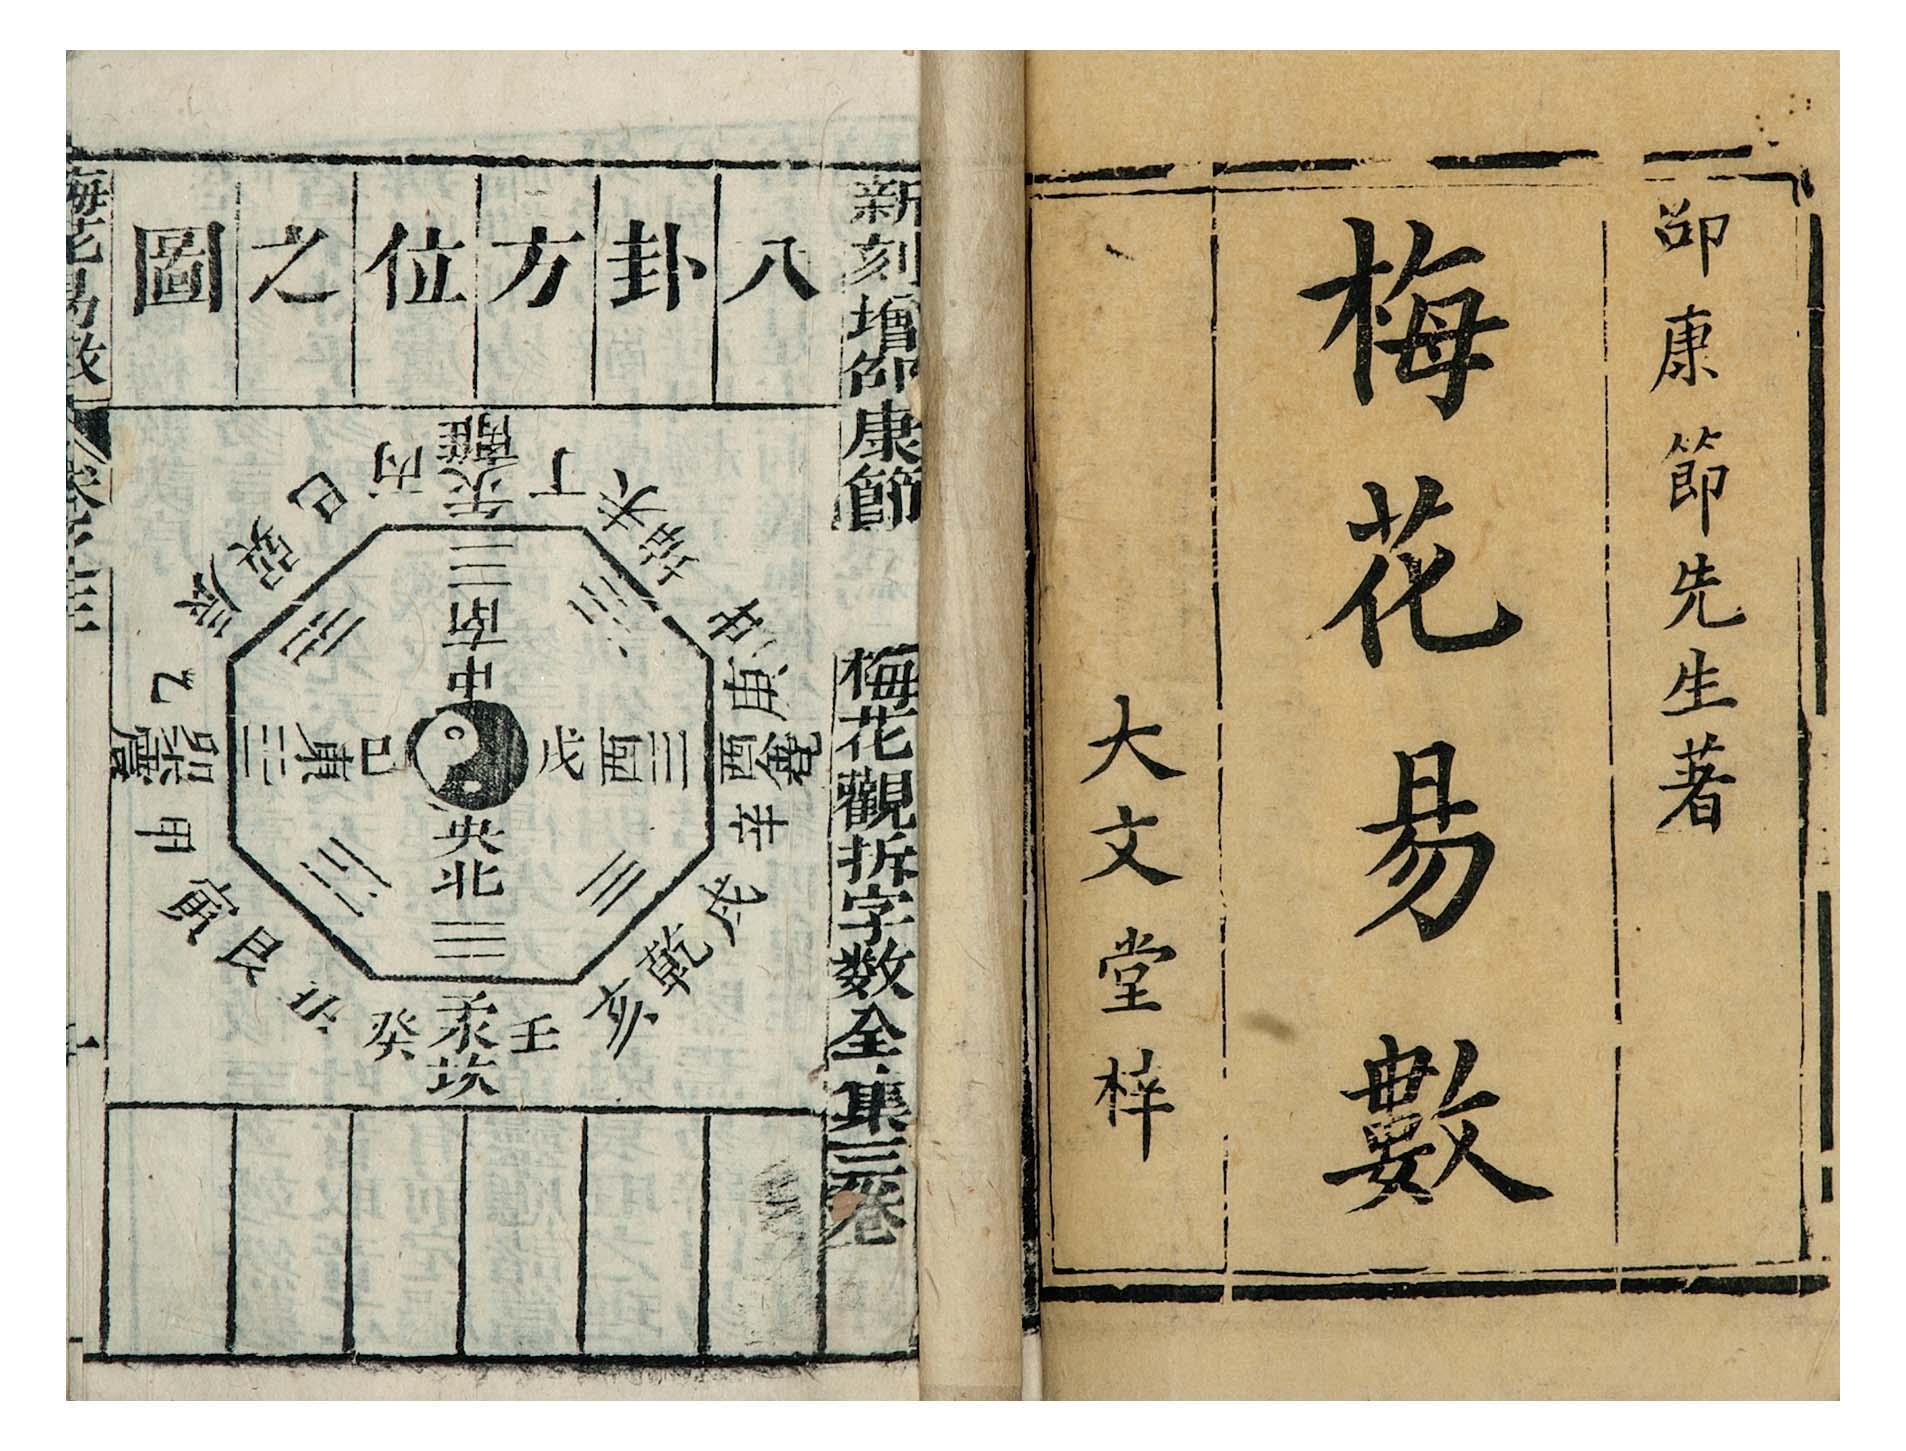 邵康節先生著
梅花易數
大文堂梓
新刻增邵康節 梅花觀拆字數全集三卷
八卦方位之圖
離
丙午丁
巳 未
巽 坤
辰 申
南
中
乙 庚
震卯 東 己 戊 西 酉兌
甲 辛
央
北
寅 戌
艮 乾
丑 亥
癸子壬
坎
梅花易數